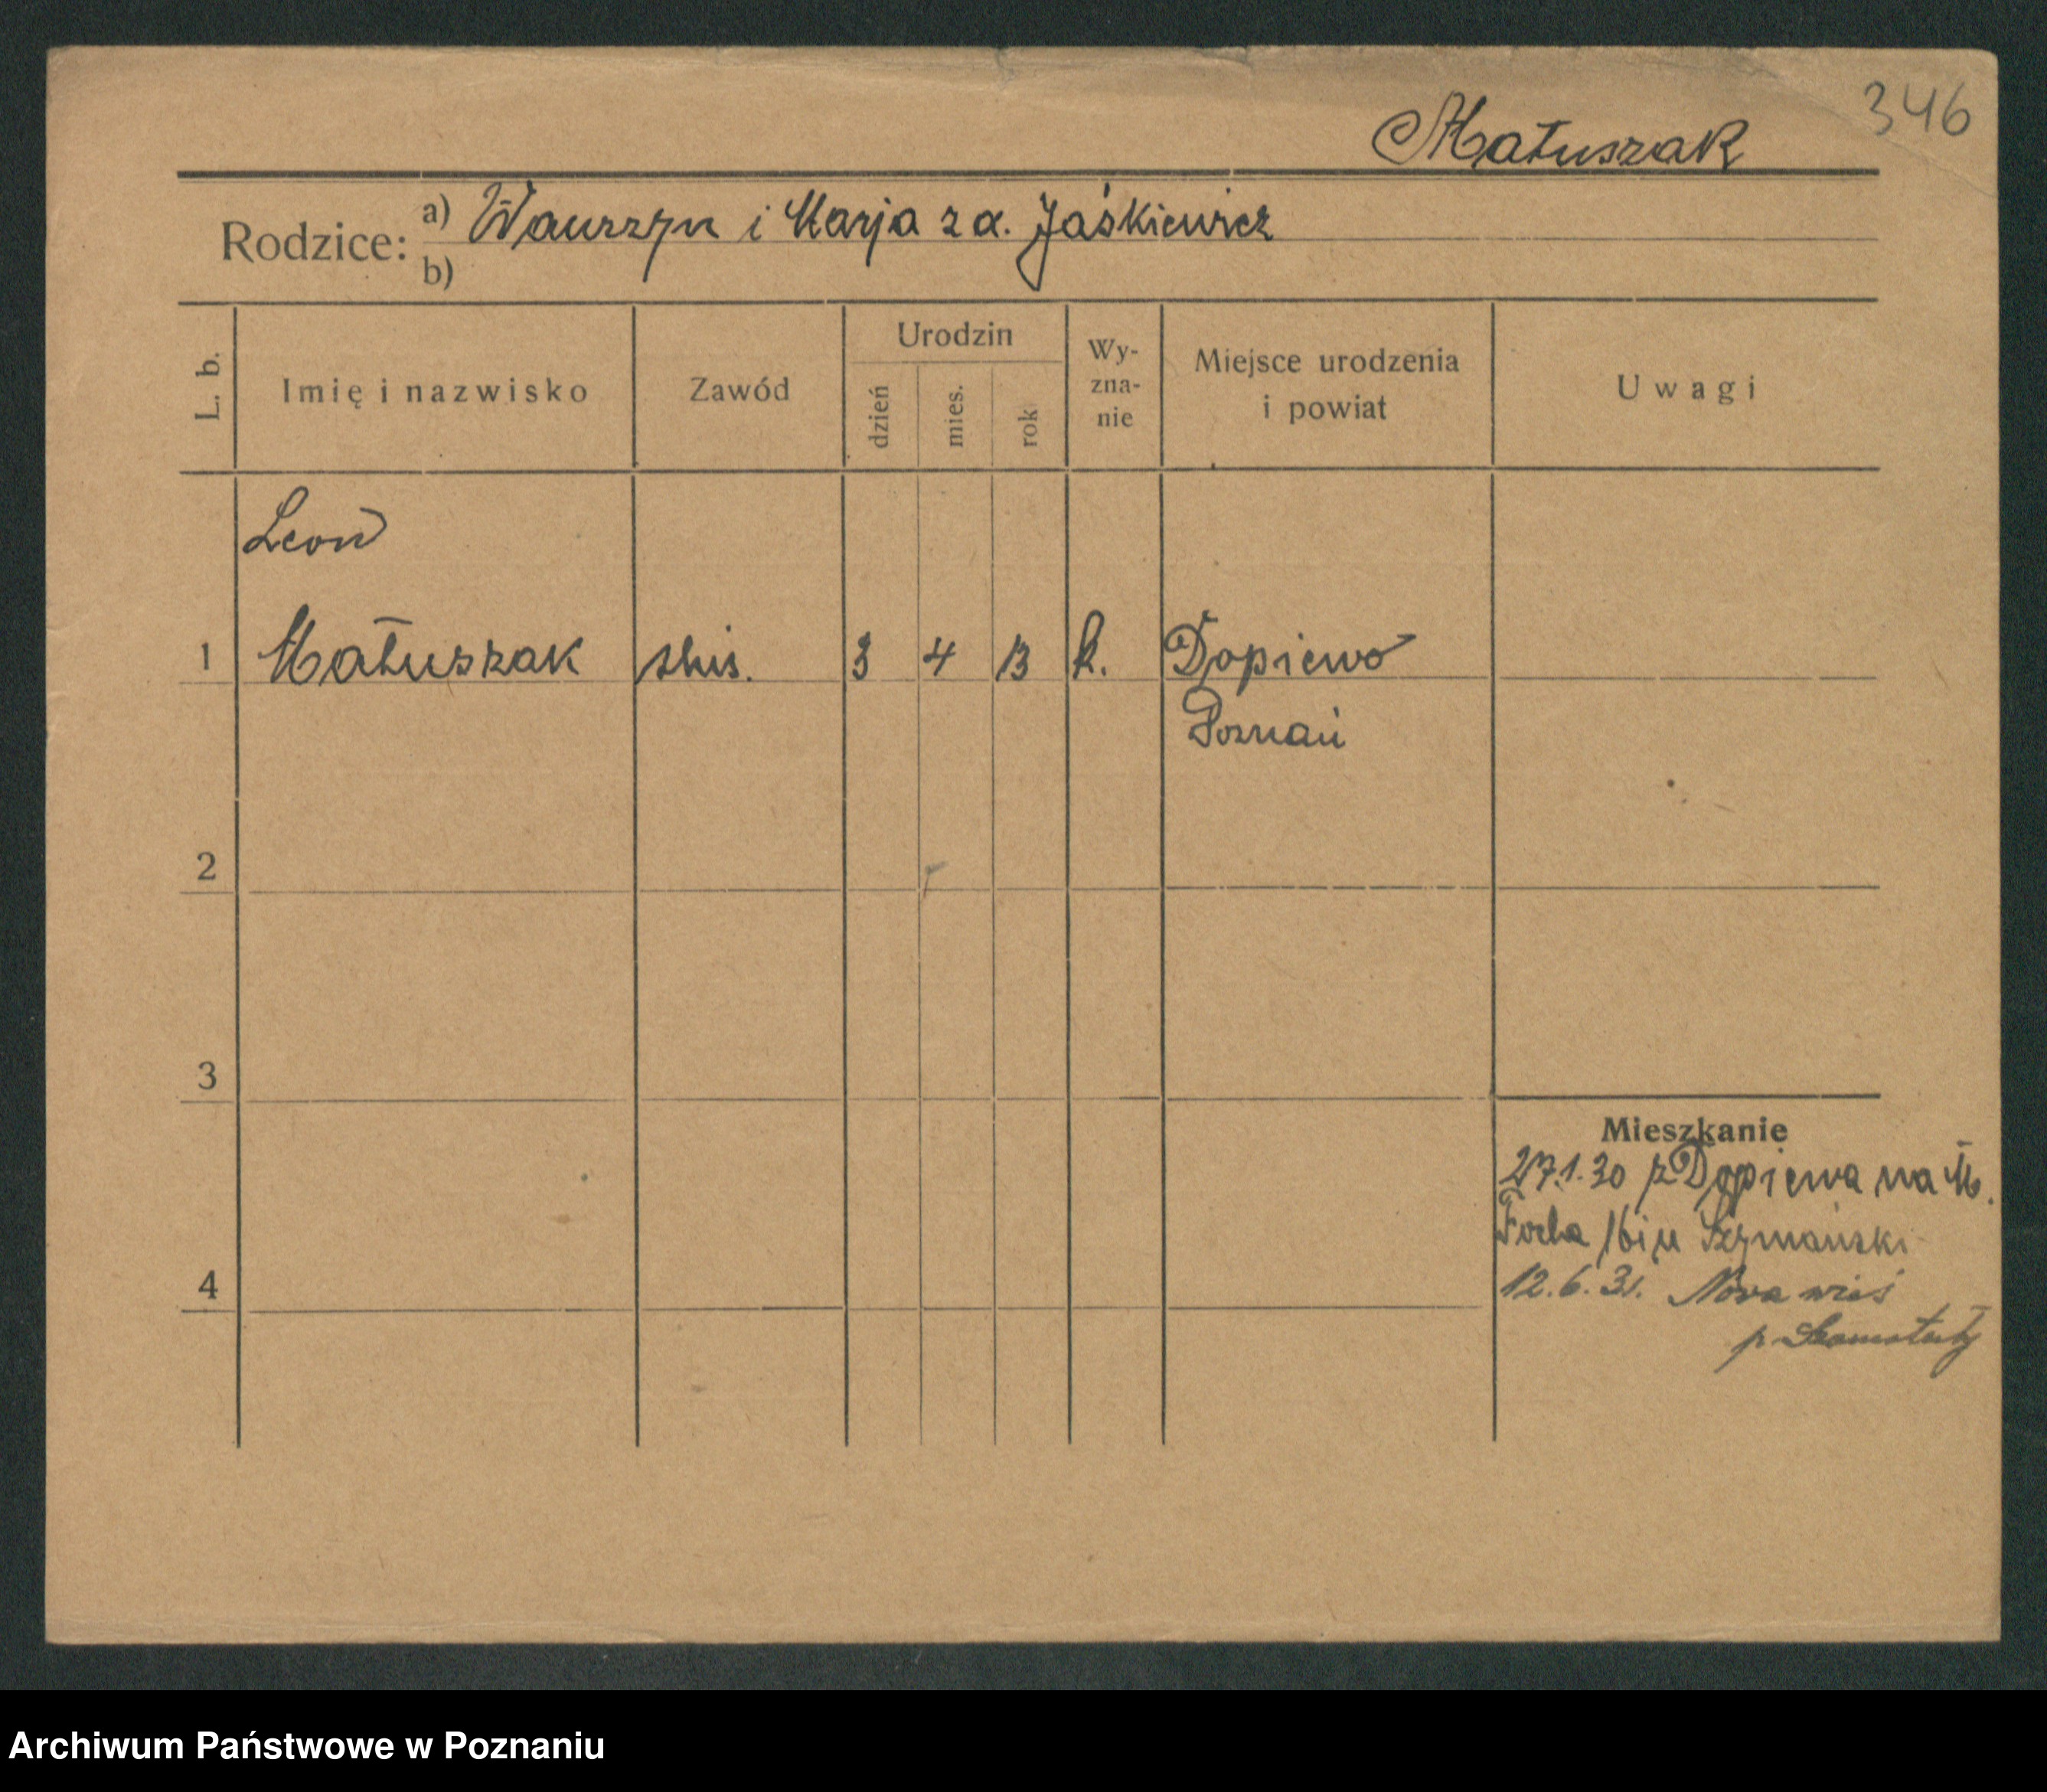 346
Matuszak
Rodzice: a) Wawrzyn i Marja z d. Jaśkiewicz
b)
L. b. Imię i nazwisko Zawód Urodzin dzień mies. rok Wy-zna-nie Miejsce urodzenia i powiat Uwagi
Leon
1 Matuszak 3 4 13 k. Dopiewo
Poznań
2
3
Mieszkanie
27.1.30 z Dopiewa na M.
Focha 16 u Szymański
4
12.6.31. Nowa wieś
p. Szamotuły
Archiwum Państwowe w Poznaniu